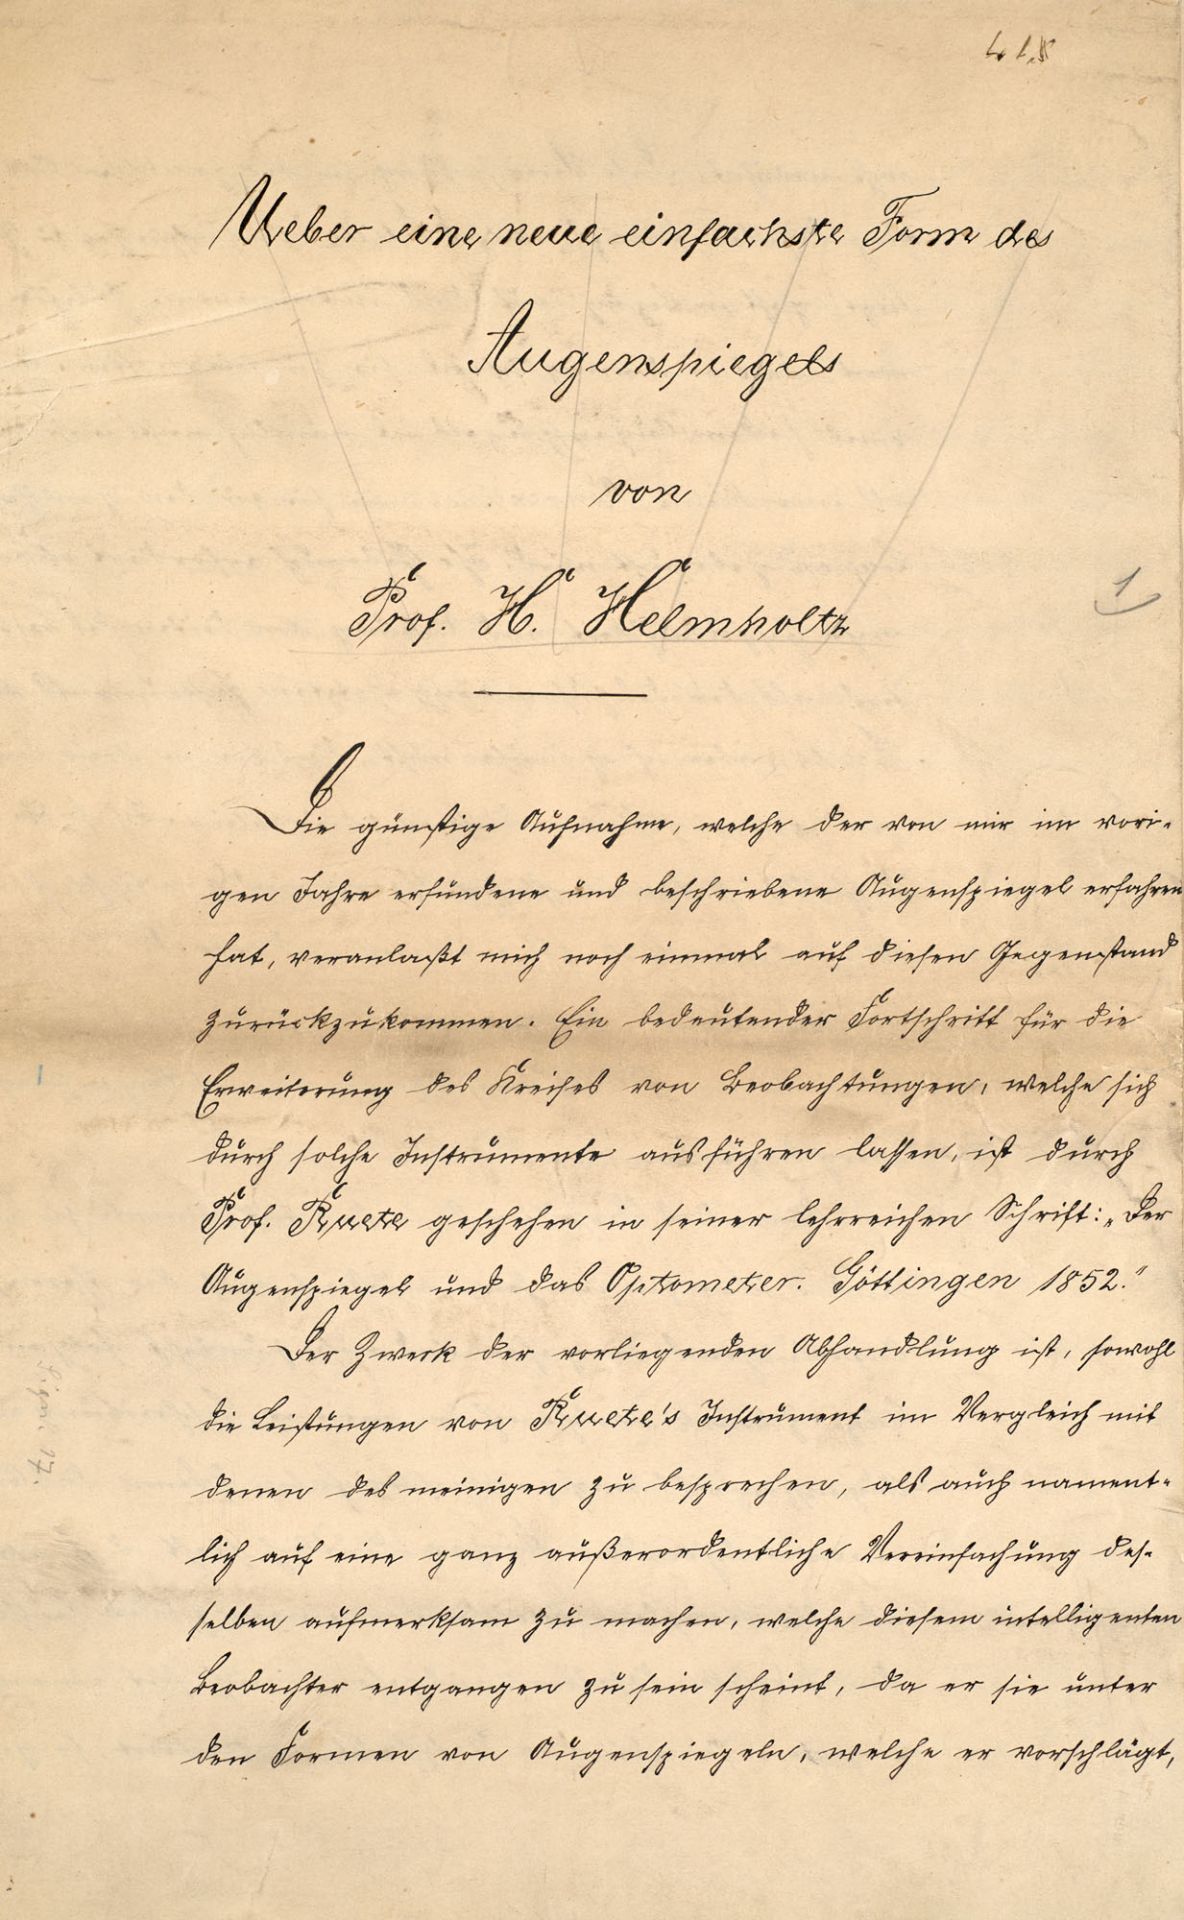 Ueber eine neue einfachste Form des
Augenspiegels
von
Prof. H. Helmholtz
1
Die günstige Aufnahme, welche der von mir im vori-
gen Jahre erfundene und beschriebene Augenspiegel erfahren
hat, veranlaßt mich noch einmal auf diesen Gegenstand
zurückzukommen. Ein bedeutender Fortschritt für die
Erweiterung des Kreises von Beobachtungen, welche sich
durch solche Instrumente ausführen lassen, ist durch
Prof. Ruete geschehen in seiner lehrreichen Schrift: „Der
Augenspiegel und das Optometer. Göttingen 1852."
Der Zweck der vorliegenden Abhandlung ist, sowohl
die Leistungen von Ruete's Instrument im Vergleich mit
denen des meinigen zu besprechen, als auch nament-
lich auf eine ganz außerordentliche Vereinfachung des-
selben aufmerksam zu machen, welche diesem intelligenten
Beobachter entgangen zu sein scheint, da er sie unter
den Formen von Augenspiegeln, welche er vorschlägt,